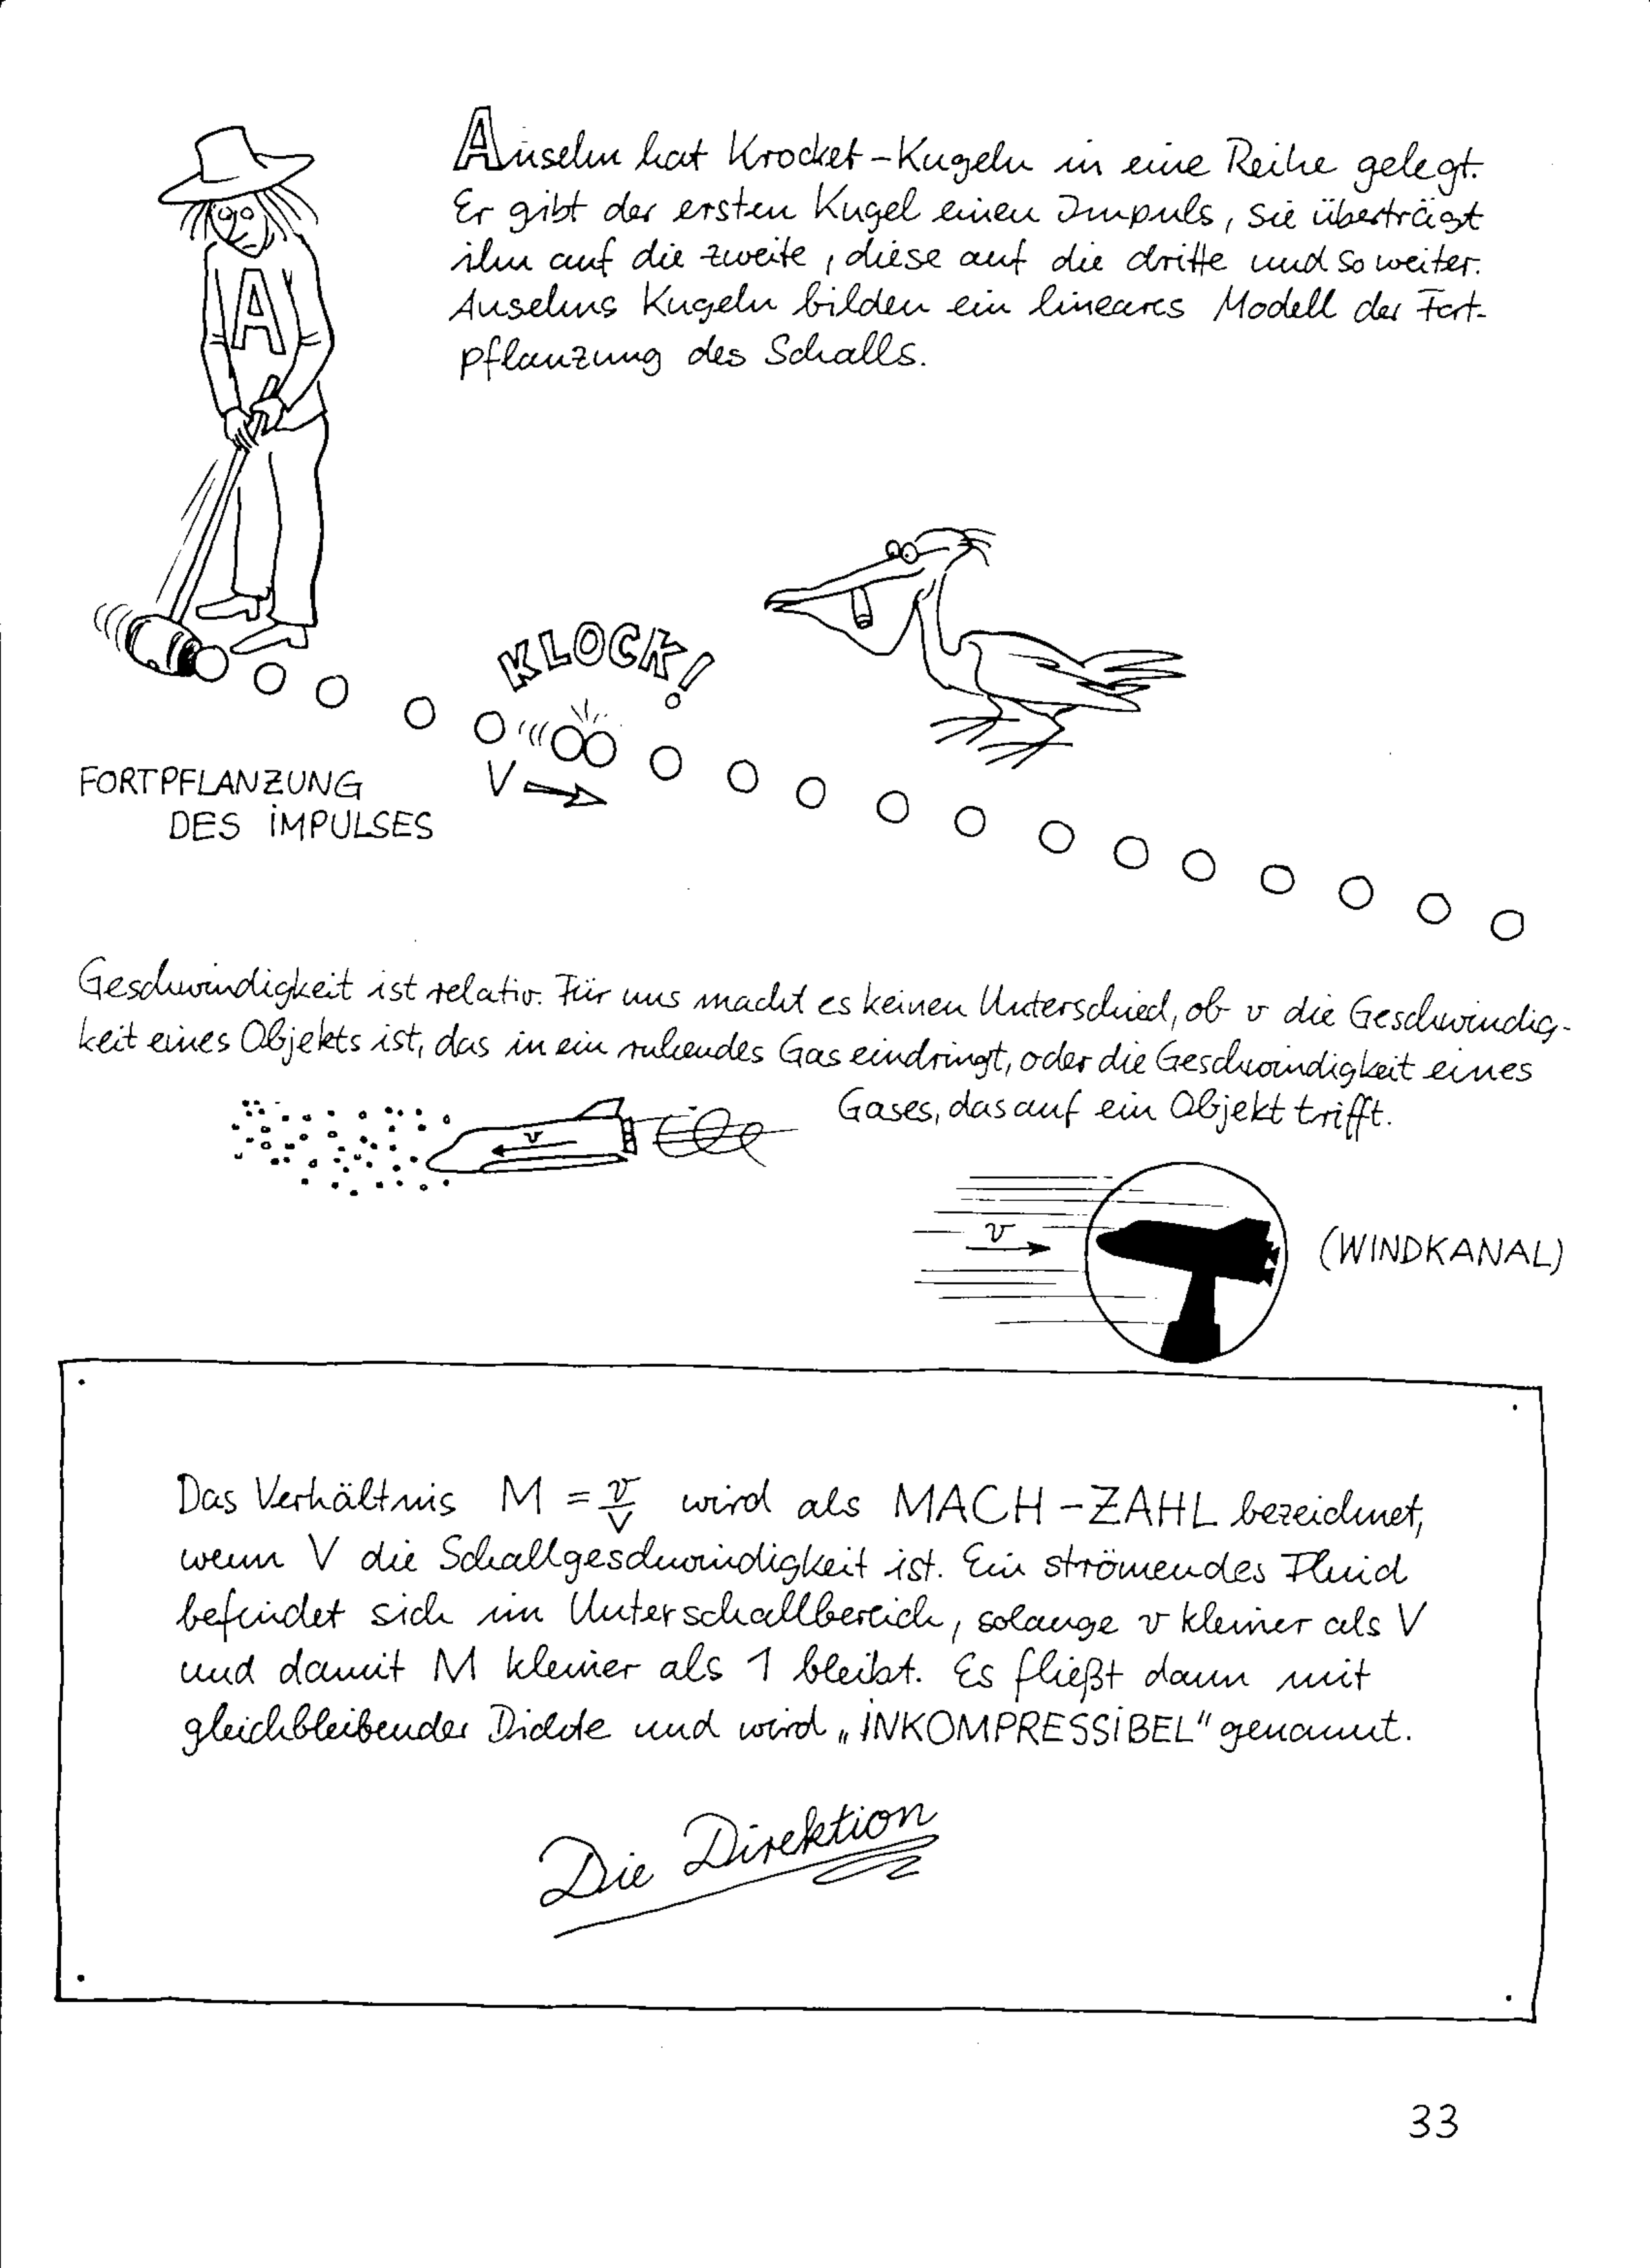 Anselm hat Krocket-Kugeln in eine Reihe gelegt.
Er gibt der ersten Kugel einen Impuls, sie überträgt
ihn auf die zweite, diese auf die dritte und so weiter.
Anselms Kugeln bilden ein lineares Modell der Fort-
pflanzung des Schalls.
A
KLOCK!
V
FORTPFLANZUNG
DES IMPULSES
Geschwindigkeit ist relativ. Für uns macht es keinen Unterschied, ob v die Geschwindig-
keit eines Objekts ist, das in ein ruhendes Gas eindringt, oder die Geschwindigkeit eines
Gases, das auf ein Objekt trifft.
v
v
(WINDKANAL)
Das Verhältnis M = v/V wird als MACH-ZAHL bezeichnet,
wenn V die Schallgeschwindigkeit ist. Ein strömendes Fluid
befindet sich im Unterschallbereich, solange v kleiner als V
und damit M kleiner als 1 bleibt. Es fließt dann mit
gleichbleibender Dichte und wird „INKOMPRESSIBEL" genannt.
Die Direktion
33